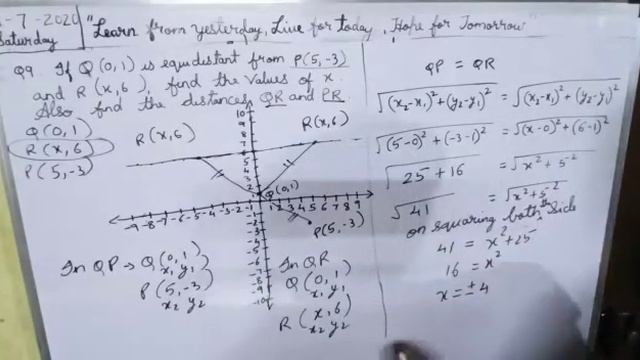 -7-2020
Saturday
"Learn from yesterday, Live for today, Hope for Tomorrow"
Q9. If Q(0,1) is equidistant from P(5,-3)
and R(x,6), find the values of x.
Also find the distances QR and PR.
Q(0,1)
R(x,6)
P(5,-3)
R(x,6)
R(x,6)
10
9
8
7
6
5
4
3
2
Q(0,1)
-9 -8 -7 -6 -5 -4 -3 -2 -1
1 2 3 4 5 6 7 8 9
P(5,-3)
-1
-2
-3
-4
-5
-6
-7
-8
-9
-10
In QP → Q(0,1)
x₁ y₁
P(5,-3)
x₂ y₂
In QR
Q(0,1)
x₁ y₁
R(x,6)
x₂ y₂
QP = QR
√(x₂-x₁)²+(y₂-y₁)² = √(x₂-x₁)²+(y₂-y₁)²
√(5-0)²+(-3-1)² = √(x-0)²+(6-1)²
√25+16 = √x²+5²
√41 = √x²+5²
on squaring both the side
41 = x²+25
16 = x²
x = ±4